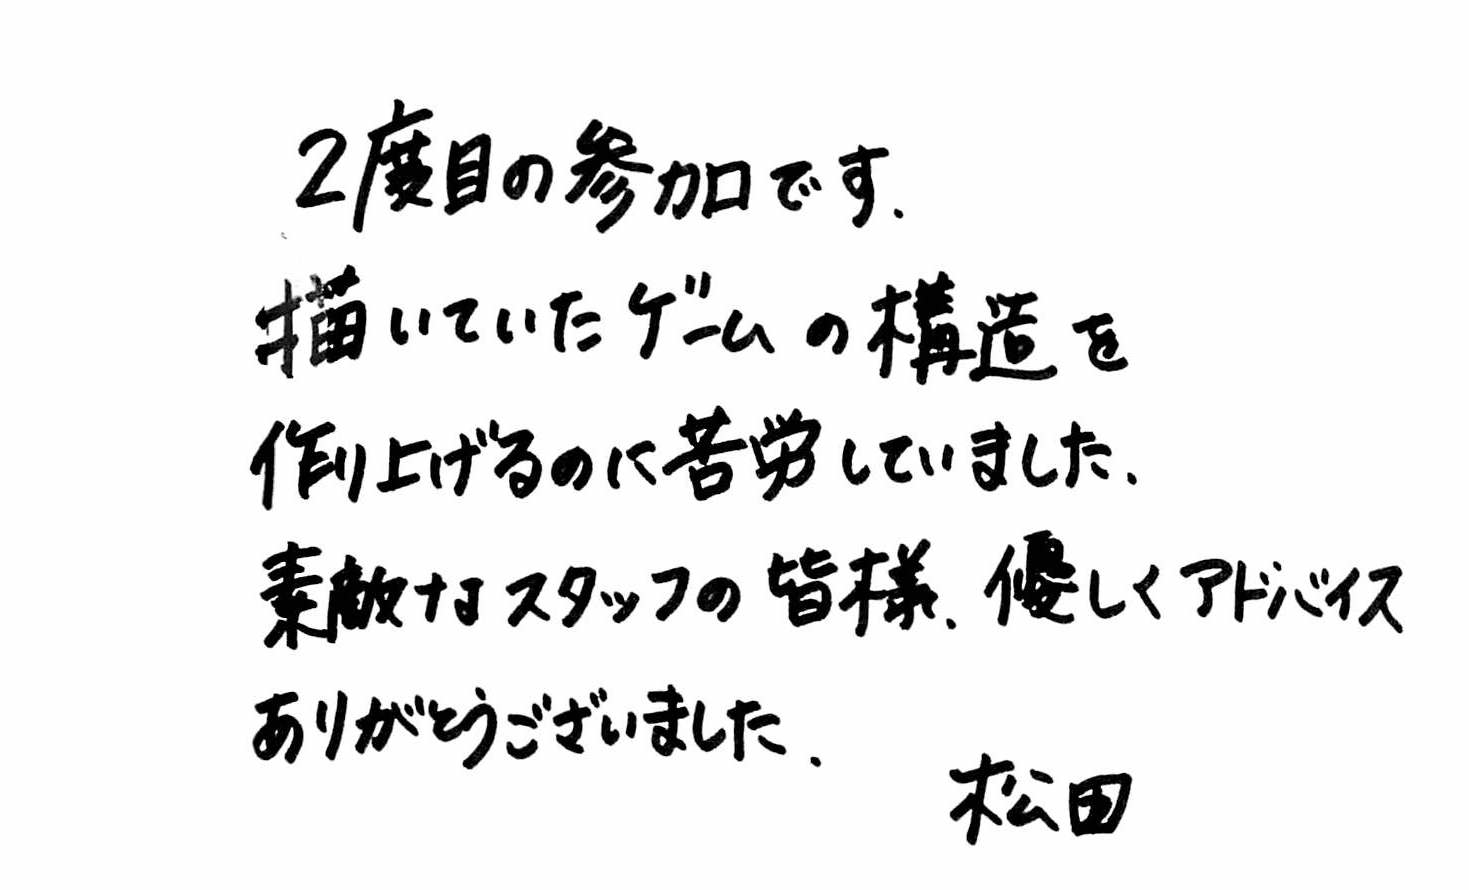 2度目の参加です.
描いていたゲームの構造を
作り上げるのに苦労していました.
素敵なスタッフの皆様.優しくアドバイス
ありがとうございました.
松田